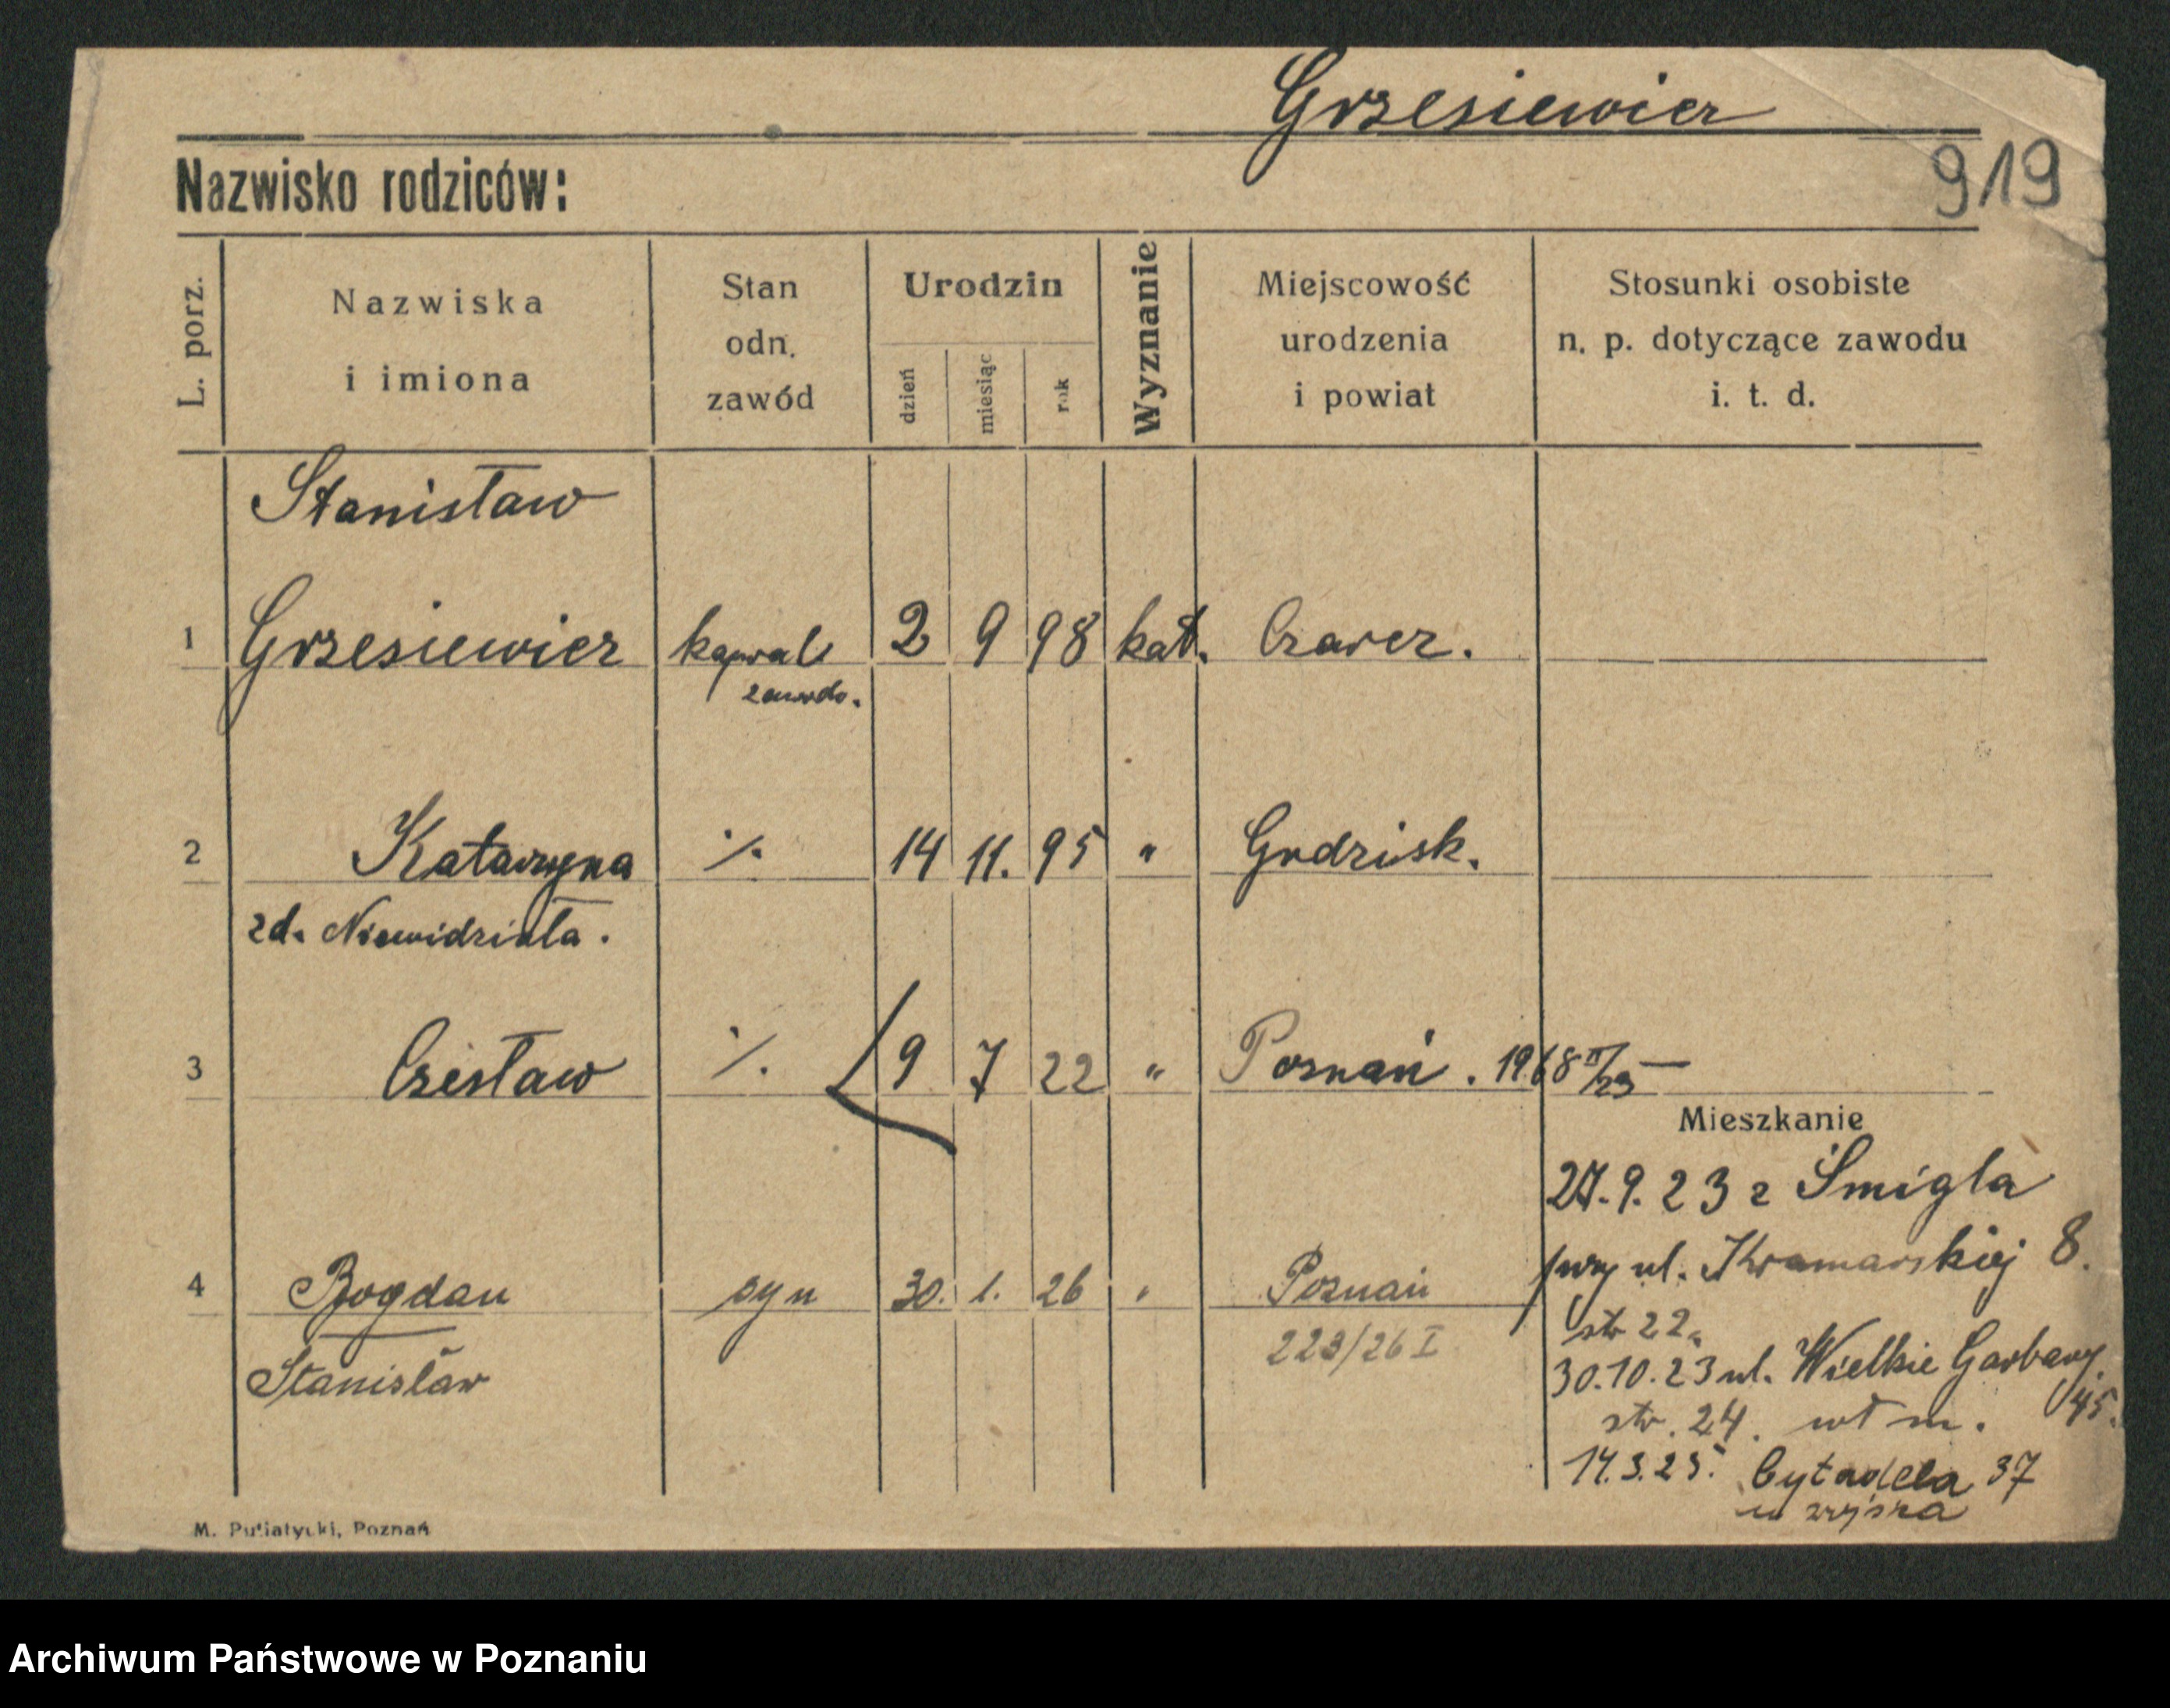 Grzesiewicz
919
Nazwisko rodziców:
L. porz.
Nazwiska
i imiona
Stan
odn.
zawód
Urodzin
dzień
miesiąc
rok
Wyznanie
Miejscowość
urodzenia
i powiat
Stosunki osobiste
n. p. dotyczące zawodu
i. t. d.
Stanisław
1 Grzesiewicz kapral 2 9 98 kat. Czarcz.
zawodo.
2 Katarzyna ·/. 14 11. 95 " Grodzisk.
zd. Niewidziała.
3 Czesław ·/. 9 7 22 " Poznań. 1968
Mieszkanie
27.9.23 z Śmigla
przy ul. Kramarskiej 8.
4 Bogdan syn 30. 1. 26 " Poznań
str 22.
223/26 I
Stanisław
30.10.23 ul. Wielkie Garbary
45.
str. 24. wł m.
14.3.25. Cytadela 37
M. Putiatycki, Poznań
Archiwum Państwowe w Poznaniu